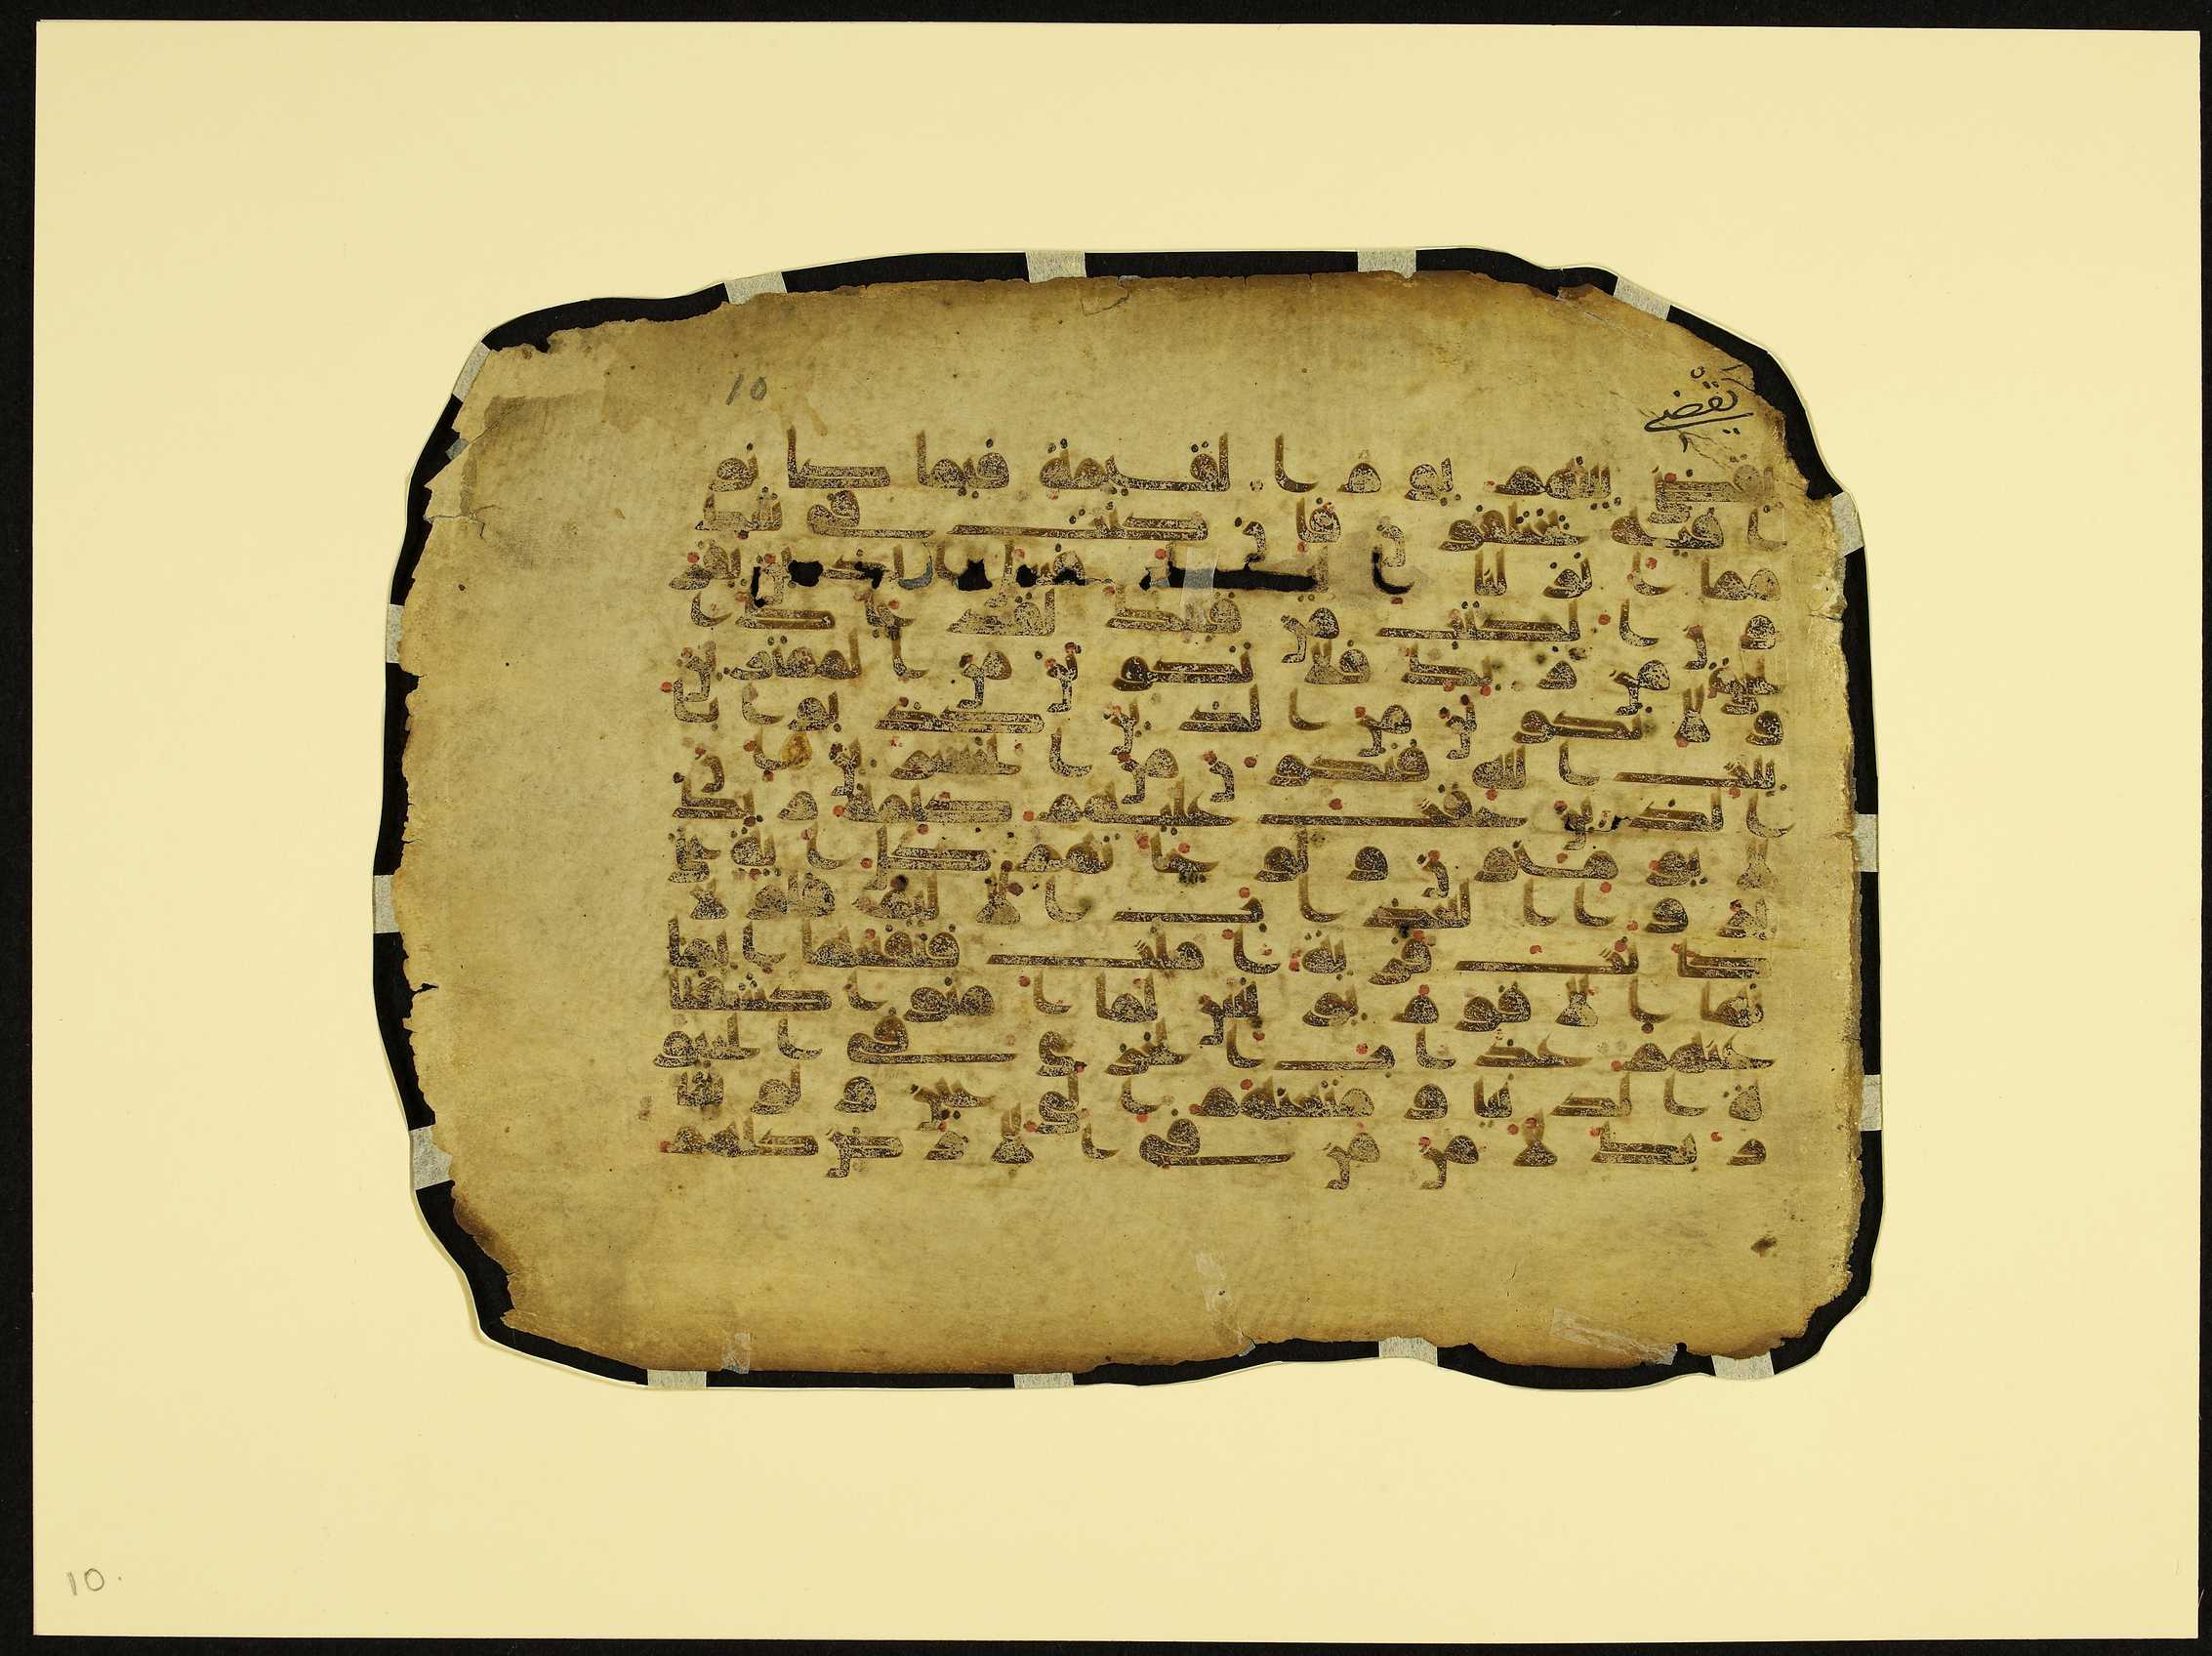 10
يقضي
يقضي بينهم يوم القيمة فيما كانو
ا فيه يختلفون فان كنت في شك
مما انزلنا اليك فسل الذين يقر
ون الكتب من قبلك لقد جاك ا
لحق من ربك فلا تكونن من الممترين
و لا تكونن من الذين كذبوا با
يت الله فتكون من الخسرين ان
الذين حقت عليهم كلمت ربك
لا يومنون و لو جاتهم كل اية حتى
يروا العذاب الاليم فلولا
كانت قرية امنت فنفعها ايما
نها الا قوم يونس لما امنوا كشفنا
عنهم عذاب الخزي في الحيو
ة الدنيا و متعنهم الى حين و لو شا
ربك لامن من في الارض كلهم
10.